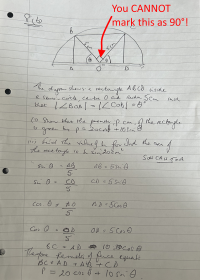 You CANNOT
mark this as 90°!
B
C
5cm
5cm
θ
θ
A
O
D
The diagram shows a rectangle ABCD inside
a semi-circle, centre O and radius 5cm such
that ∠BOA = ∠COD = θ°
(i) Show that the perimeter, P cm, of the rectangle
is given by P = 20cosθ + 10sinθ
(iii) Find the value of k for which the area of
the rectangle is k sin2θ cm²
SOH CAH TOA
sin θ = AB/5 AB = 5sinθ
sin θ = CD/5 CD = 5sinθ
cos θ = AO/5 AO = 5cosθ
cos θ = OD/5 OD = 5cosθ
BC = AD = 10cosθ
Therefore
BC + AD + AB + CD
P = 20cosθ + 10sinθ